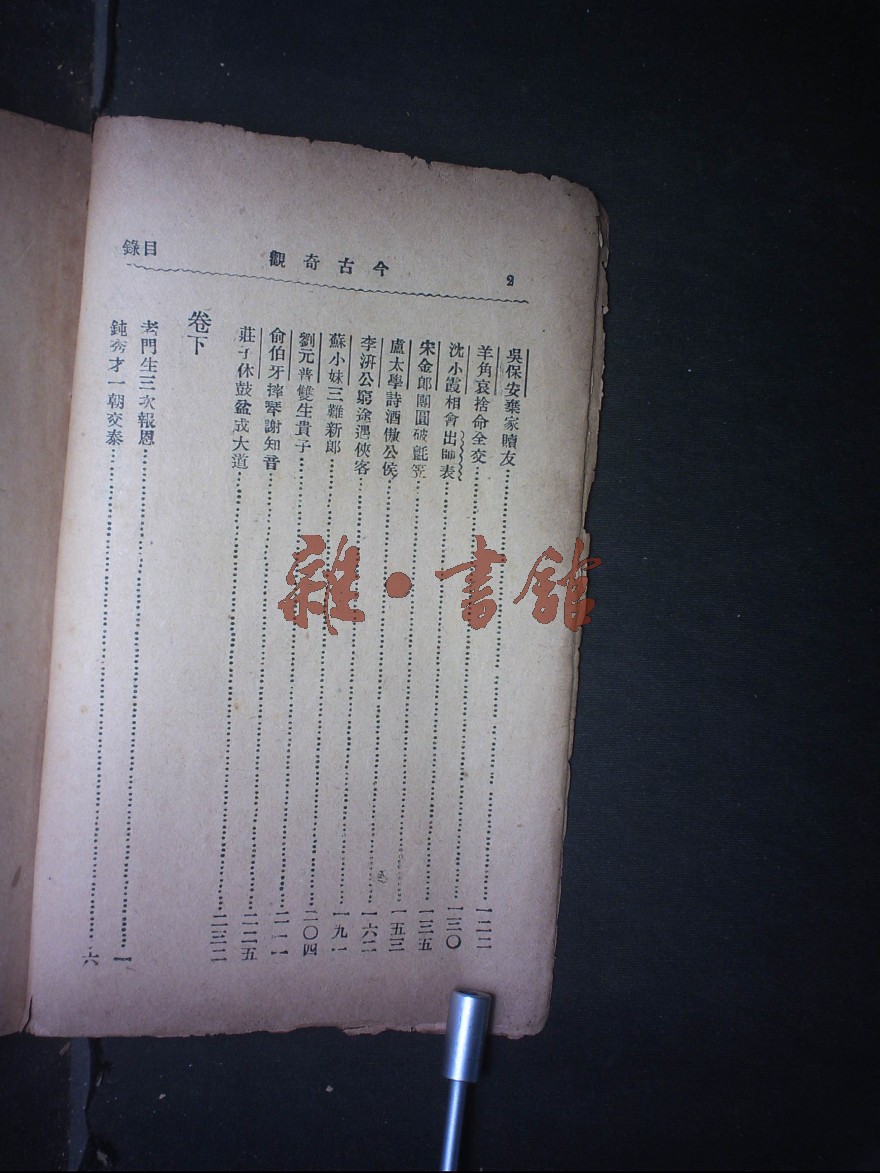 2 今古奇觀 目錄
吳保安棄家贖友 一二二
羊角哀捨命全交 一三〇
沈小霞相會出師表 一三五
宋金郎團圓破氈笠 一五三
盧太學詩酒傲公侯 一六二
李汧公窮途遇俠客 一九一
蘇小妹三難新郎 二〇四
劉元普雙生貴子 二一一
俞伯牙摔琴謝知音 二二五
莊子休鼓盆成大道 二三二
卷下
老門生三次報恩 一
鈍秀才一朝交泰 六
雜·書館